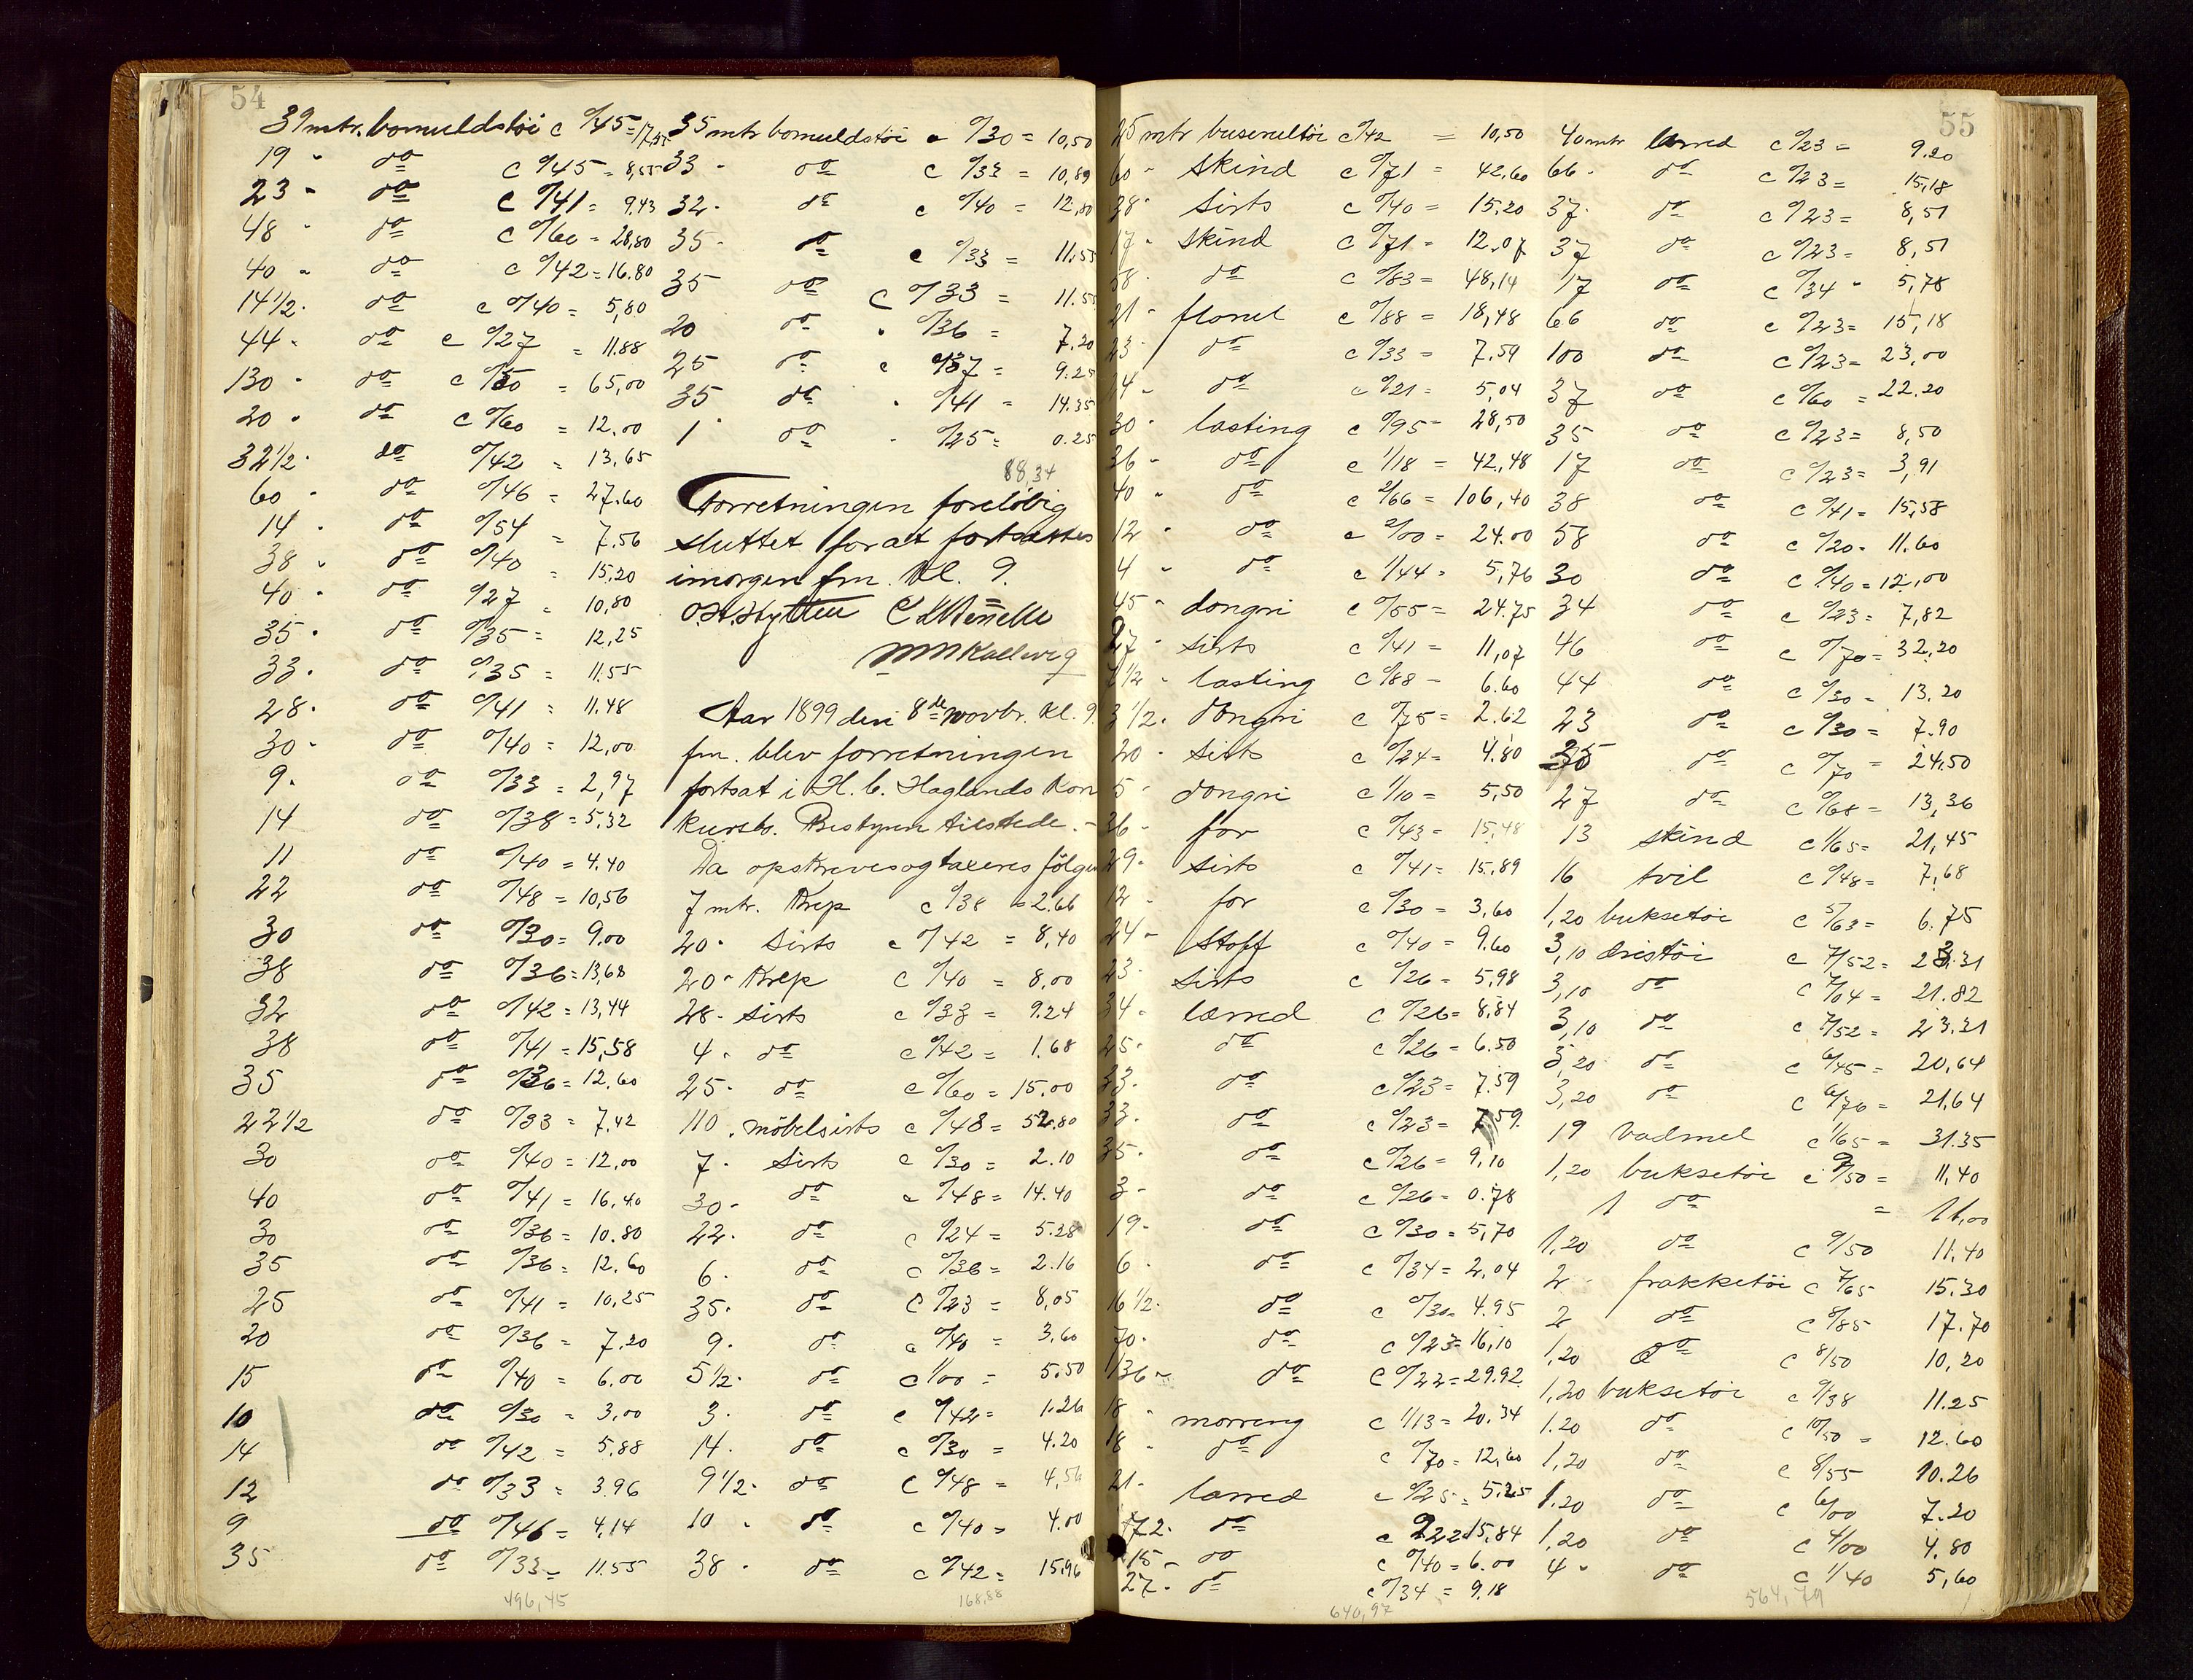 54
39 mtr. bomuldstöi c %45 = 17,55
19 - do c %45 = 8,55
23 - do c %41 = 9.43
48 - do c %60 = 28,80
40 - do c %42 = 16.80
14 1/2 - do c %40 = 5,80
44 - do c %27 = 11.88
130 - do c %50 = 65,00
20 - do c %60 = 12,00
32 1/2 - do %42 = 13,65
60 - do %46 = 27.60
14 - do %54 = 7.56
38 - do %40 = 15,20
40 - do %27 = 10,80
35 - do %35 = 12,25
33 - do %35 = 11.55
28 - do %41 = 11.48
30 - do %40 = 12,00
9 - do %33 = 2,97
14 do %38 = 5,32
11 do %40 = 4.40
22 do %48 = 10,56
30 do %30 = 9.00
38 do %36 = 13,68
32 do %42 = 13,44
38 do %41 = 15,58
35 do %36 = 12.60
22 1/2 do %33 = 7.42
30 do %40 = 12,00
40 do %41 = 16,40
30 do %36 = 10.80
35 do %36 = 12.60
25 do %41 = 10,25
20 do %36 = 7.20
15 do %40 = 6.00
10 do %30 = 3,00
14 do %42 = 5,88
12 do %33 = 3.96
9 do %46 = 4,14
35 do %33 = 11.55
496,45
35 mtr bomuldstöi a %30 = 10,50
33 - do c %33 = 10,89
32 - do c %40 = 12,80
35 - do c %33 = 11.55
35 do c %33 = 11.55
20 do - %36 = 7.20
25 do c %37 = 9.25
35 do - %41 = 14.35
1 do - %25 = 0.25
88,34
Forretningen forelöbig
sluttet for at fortsættes
imorgen fm. Kl. 9.
O. H. Hytten
Kallevig
Aar 1899 den 8de novbr. Kl. 9.
fm. blev forretningen
fortsat i H. C. Haglands Kon
kursb. Bestyren tilstede. -
Da opskreves og taxeres følgen
7 mtr. Krep c %38 = 2.66
20 - Sirts c %42 = 8,40
20 - Krep c %40 = 8,00
28 - sirts c %33 = 9.24
4 - do c %42 = 1.68
25 - do c %60 = 15.00
110 - möbelsirts c %48 = 52.80
7 - Sirts c %30 = 2.10
30 - do c %48 = 14.40
22 - do c %24 = 5.28
6 - do c %36 = 2.16
35 - do c %23 = 8,05
9 - do c %40 = 3,60
5 1/2 - do c 1/00 = 5.50
3 - do c %42 = 1.26
14 - do c %30 = 4.20
9 1/2 - do c %48 = 4,56
10 - do c %40 = 4.00
38 - do c %42 = 15,96
168,88
55
25 mtr buserultöi c %42 = 10,50
60 - Skind c %71 = 42,60
38 - Sirts c %40 = 15.20
17 - Skind c %71 = 12.07
58 - do c %83 = 48,14
21 - flonel c %88 = 18,48
23 - do c %33 = 7.59
24 - do c %21 = 5,04
30 - lasting c %95 = 28,50
36 - do c 1/18 = 42,48
40 - do c 2/66 = 106,40
12 - do c 2/00 = 24.00
4 - do c 1/44 = 5,76
45 - dongri c %55 = 24.75
27 - Sirts c %41 = 11,07
7 1/2 - lasting c %88 = 6.60
3 1/2 - dongri c %75 = 2.62
20 - Sirts c %24 = 4.80
5 - dongri c 1/10 = 5,50
36 - for c %43 = 15,48
29 - Sirts c %41 = 15.89
12 - for c %30 = 3,60
24 - Stoff c %40 = 9.60
23 - Sirts c %26 = 5,98
34 - lærred c %26 = 8,84
25 - do c %26 = 6.50
33 - do c %23 = 7.59
33 - do c %23 = 7.59
35 - do c %26 = 9,10
3 - do c %26 = 0.78
19 - do c %30 = 5,70
6 - do c %34 = 2,04
16 1/2 - do c %30 = 4.95
70 - do c %23 = 16,10
136 - do c %22 = 29.92
18 - morreng c 1/13 = 20.34
18 - do c %70 = 12,60
21 - lærred c %25 = 5.25
72 - do c %22 = 15,84
15 - do c %40 = 6.00
27 - do c %34 = 9.18
640,97
40 mtr lærred c %23 = 9.20
66 - do c %23 = 15,18
37 - do c %23 = 8,51
37 do c %23 = 8,51
17 do c %34 - 5,78
66 do c %23 = 15,18
100 do c %23 = 23,00
37 do c %60 = 22.20
35 do c %23 = 8,50
17 do c %23 = 3,91
38 do c %41 = 15,58
58 do c %20 - 11.60
30 do c %40 = 12,00
34 do c %23 = 7,82
46 do c %70 = 32,20
44 do c %30 = 13.20
23 do c %30 = 7.90
35 do c %70 = 24,50
27 do c %68 = 13,36
13 skind c 1/65 = 21,45
16 tvil c %48 = 7,68
1,20 buksetöi c 5/63 = 6.75
3,10 dristöi c 7/52 = 23.31
3,10 do c 7/04 = 21.82
3,10 do c 7/52 = 23.31
3,20 do c 6/45 = 20,64
3,20 do c 6/76 = 21,64
19 Vadmel c 1/65 = 31.35
1,20 buksetöi c 9/50 = 11,40
1 do = 11,00
1,20 do c 9/50 11.40
2 - frakketöi c 7/65 15.30
2 do c 8/85 17.70
1,20 do c 8/50 10,20
1,20 buksetöi c 9/38 11.25
1.20 do c 10/50 = 12.60
1,20 do c 8/55 10.26
1.20 do c 6/00 7.20
1,20 do c 4/00 4.80
4 - do c 1/40 5,60
564,79